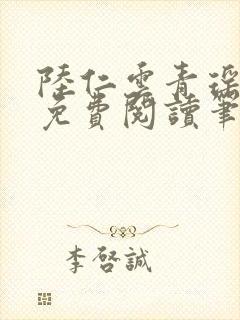 陸仁雲青瑶
免費閱讀筆
李啓誠